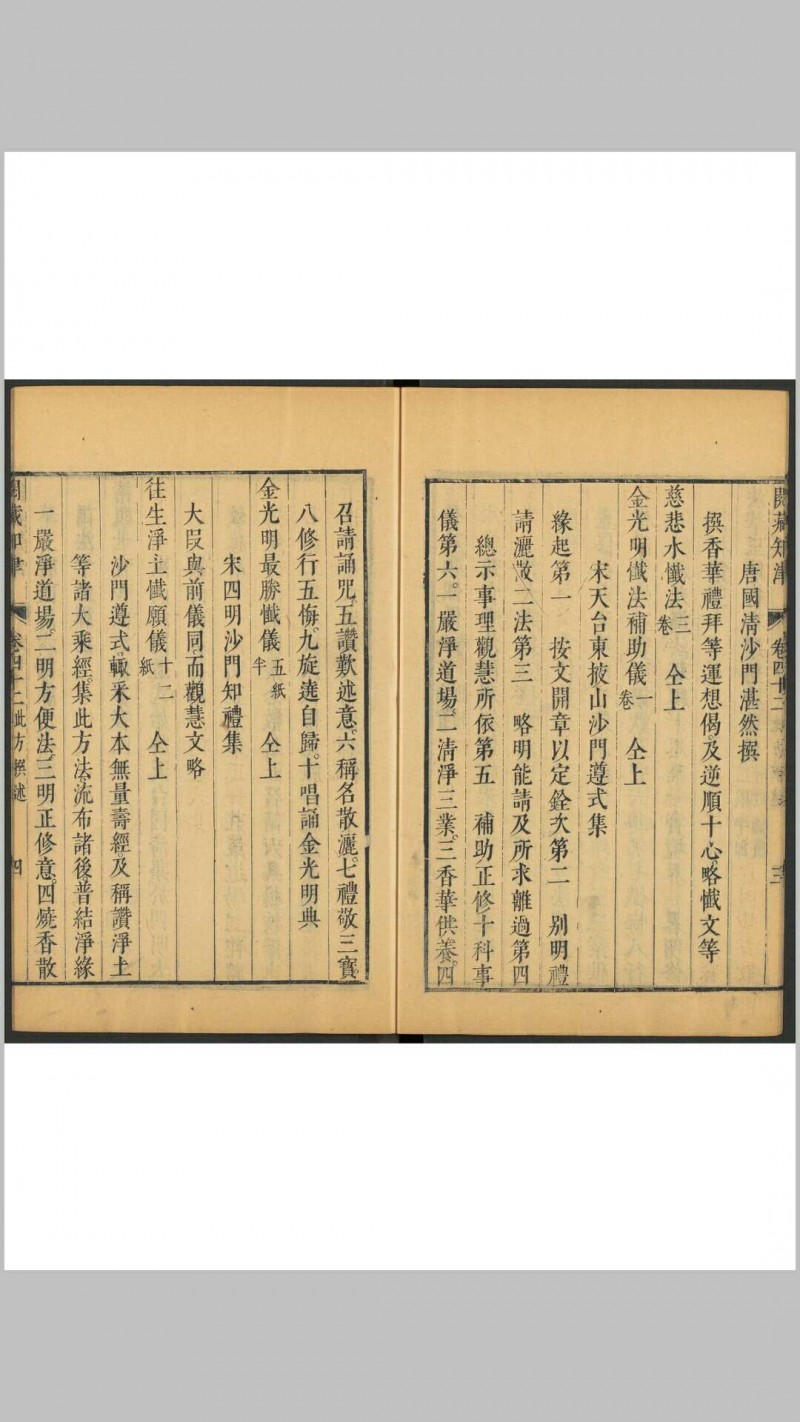 閱藏知津 卷四十二 三
唐國清沙門湛然撰
撰香華禮拜等運想偈及逆順十心略懺文等
慈悲水懺法三卷 仝上
金光明懺法補助儀一卷 仝上
宋天台東掖山沙門遵式集
緣起第一 按文開章以定銓次第二 别明禮
請灑散二法第三 略明能請及所求離過第四
總示事理觀慧所依第五 補助正修十科事
儀第六。一嚴淨道場。二清淨三業。三香華供養。四
召請誦咒。五讚歎述意。六稱名散灑。七禮敬三寶。
八修行五悔。九旋遶自歸。十唱誦金光明典
金光明最勝懺儀五紙半 仝上
宋四明沙門知禮集
大段與前儀同而觀慧文略
往生淨土懺願儀十二紙 仝上
沙門遵式輙采大本無量壽經及稱讚淨土
等諸大乘經集此方法流布諸後普結淨緣
一嚴淨道場。二明方便法。三明正修意。四燒香散
閱藏知津 卷四十二 此方撰述 四